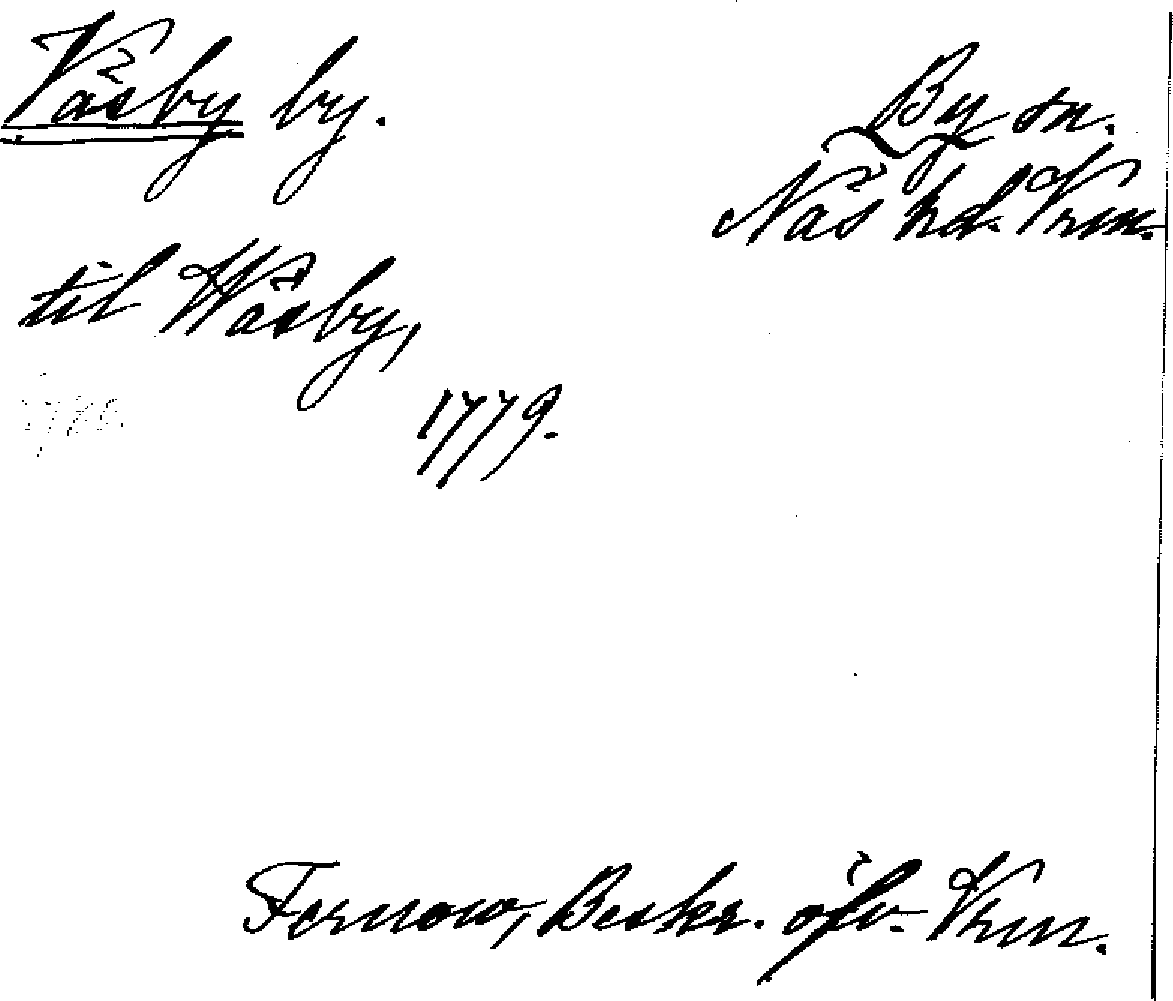 Väsby by.
By sn.
Näs hd. Vrm.
til Wäsby,
1779.
Fernow, Beskr. öfv. Vrm.